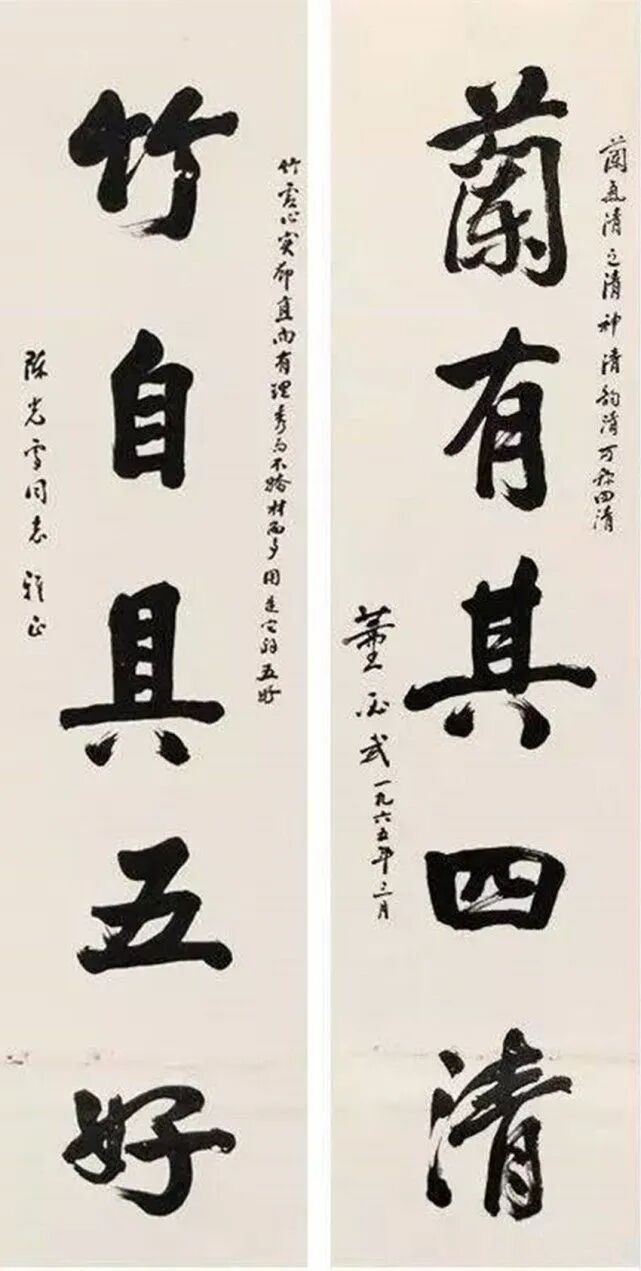 蘭氣清色清神清韵清可称四清
蘭有其四清
董必武 一九六五年三月
竹虚心实節直而有理秀而不骄材而多用是它的五好
竹自具五好
陈光雪同志雅正